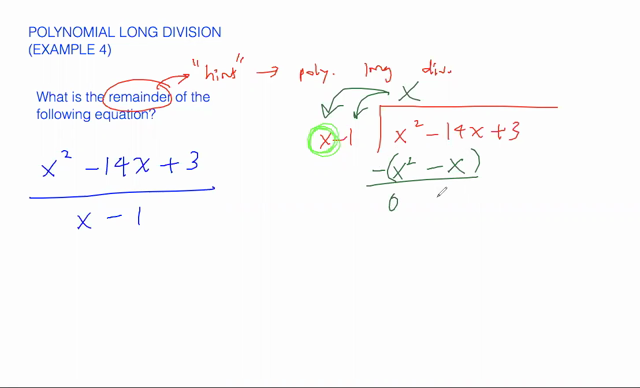 POLYNOMIAL LONG DIVISION
(EXAMPLE 4)
"hint" → poly. long div.
What is the remainder of the
following equation?
x² - 14x + 3
x - 1
x
x - 1 x² - 14x + 3
-(x² - x)
0